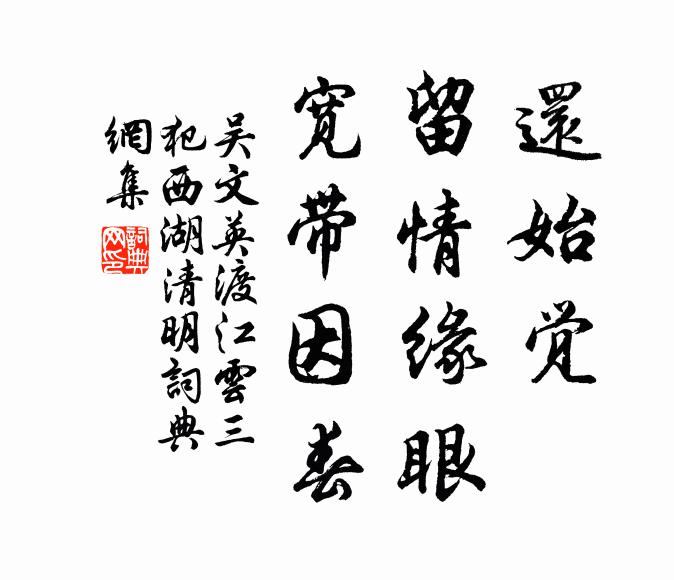 還始觉
留情缘眼
宽带因春
吴文英渡江雲三
犯西湖清明詞典
網集
詞典
网印